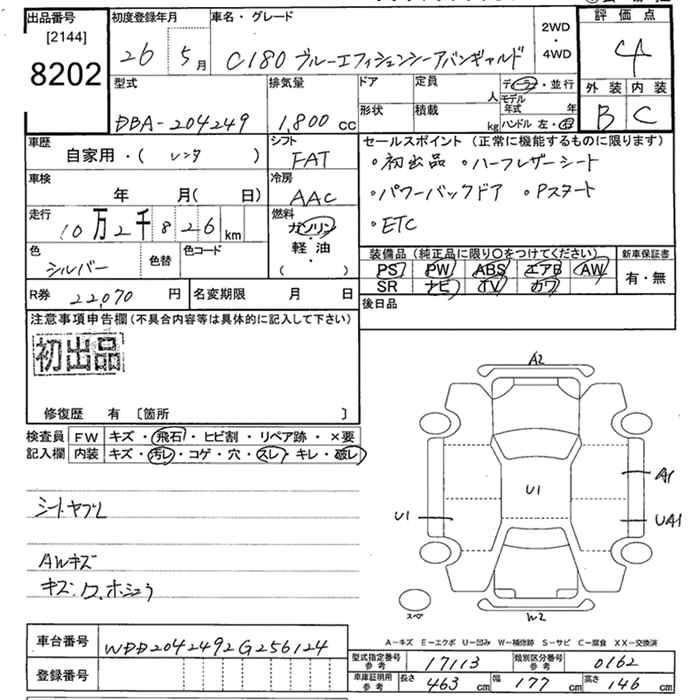 出品番号
[2144]
8202
初度登録年月
26 5月
車名・グレード
C180 ブルーエフィシェンシーアバンギャルド
2WD
・
4WD
評価点
4
外装 内装
B C
型式
DBA-204249
排気量
1,800 cc
ドア
定員
人
形状
積載
kg
ディーラー・並行
モデル年式 年
ハンドル 左・右
車歴
自家用・( レンタ )
シフト
FAT
車検
年 月( 日)
冷房
AAC
走行
10万2千826km
燃料
ガソリン
・
軽油
( )
色
シルバー
色替
色コード
R券 22,070 円
名変期限 月 日
セールスポイント (正常に機能するものに限ります)
・初出品 ・ハーフレザーシート
・パワーバックドア ・Pスタート
・ETC
装備品(純正品に限り〇をつけてください)
PS PW ABS エアB AW
SR ナビ TV カワ
新車保証書
有・無
後日品
注意事項申告欄(不具合内容等は具体的に記入して下さい)
初出品
修復歴 有 〔箇所 〕
検査員記入欄
FW キズ・飛石・ヒビ割・リペア跡・×要
内装 キズ・汚レ・コゲ・穴・スレ・キレ・破レ
シートヤブレ
AWキズ
キズ・ワ、ホシュウ
A2
A1
U1
U1
UA1
スペ
W2
A-キズ E-エクボ U-凹み W-補修跡 S-サビ C-腐食 XX-交換済
車台番号 WDD2042492G256124
登録番号
型式指定番号参考 17113
類別区分番号参考 0162
車庫証明用参考 長さ 463 cm 幅 177 cm 高さ 146 cm